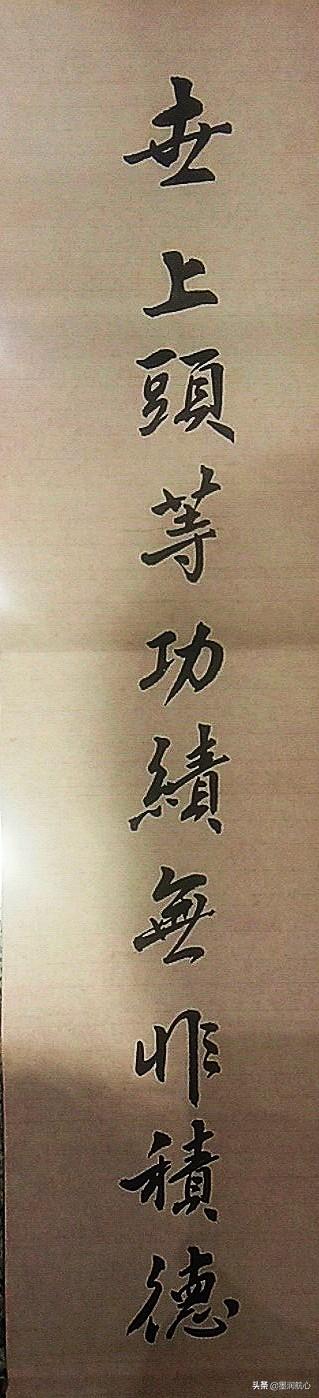 世上頭等功績無非積德
头条@墨润航心